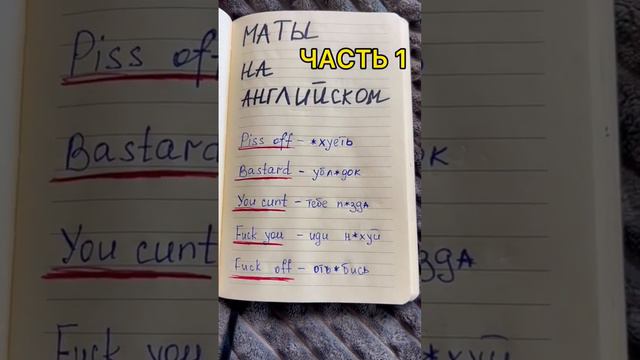 МАТЫ
ЧАСТЬ 1
НА
АНГЛИЙСКОМ
Piss off – *хуеть
Bastard – убл*док
You cunt – тебе п*зда
Fuck you – иди н*хуй
Fuck off – отъ*бись
Piss off
Bastard
You cunt
Fuck you
док
зда